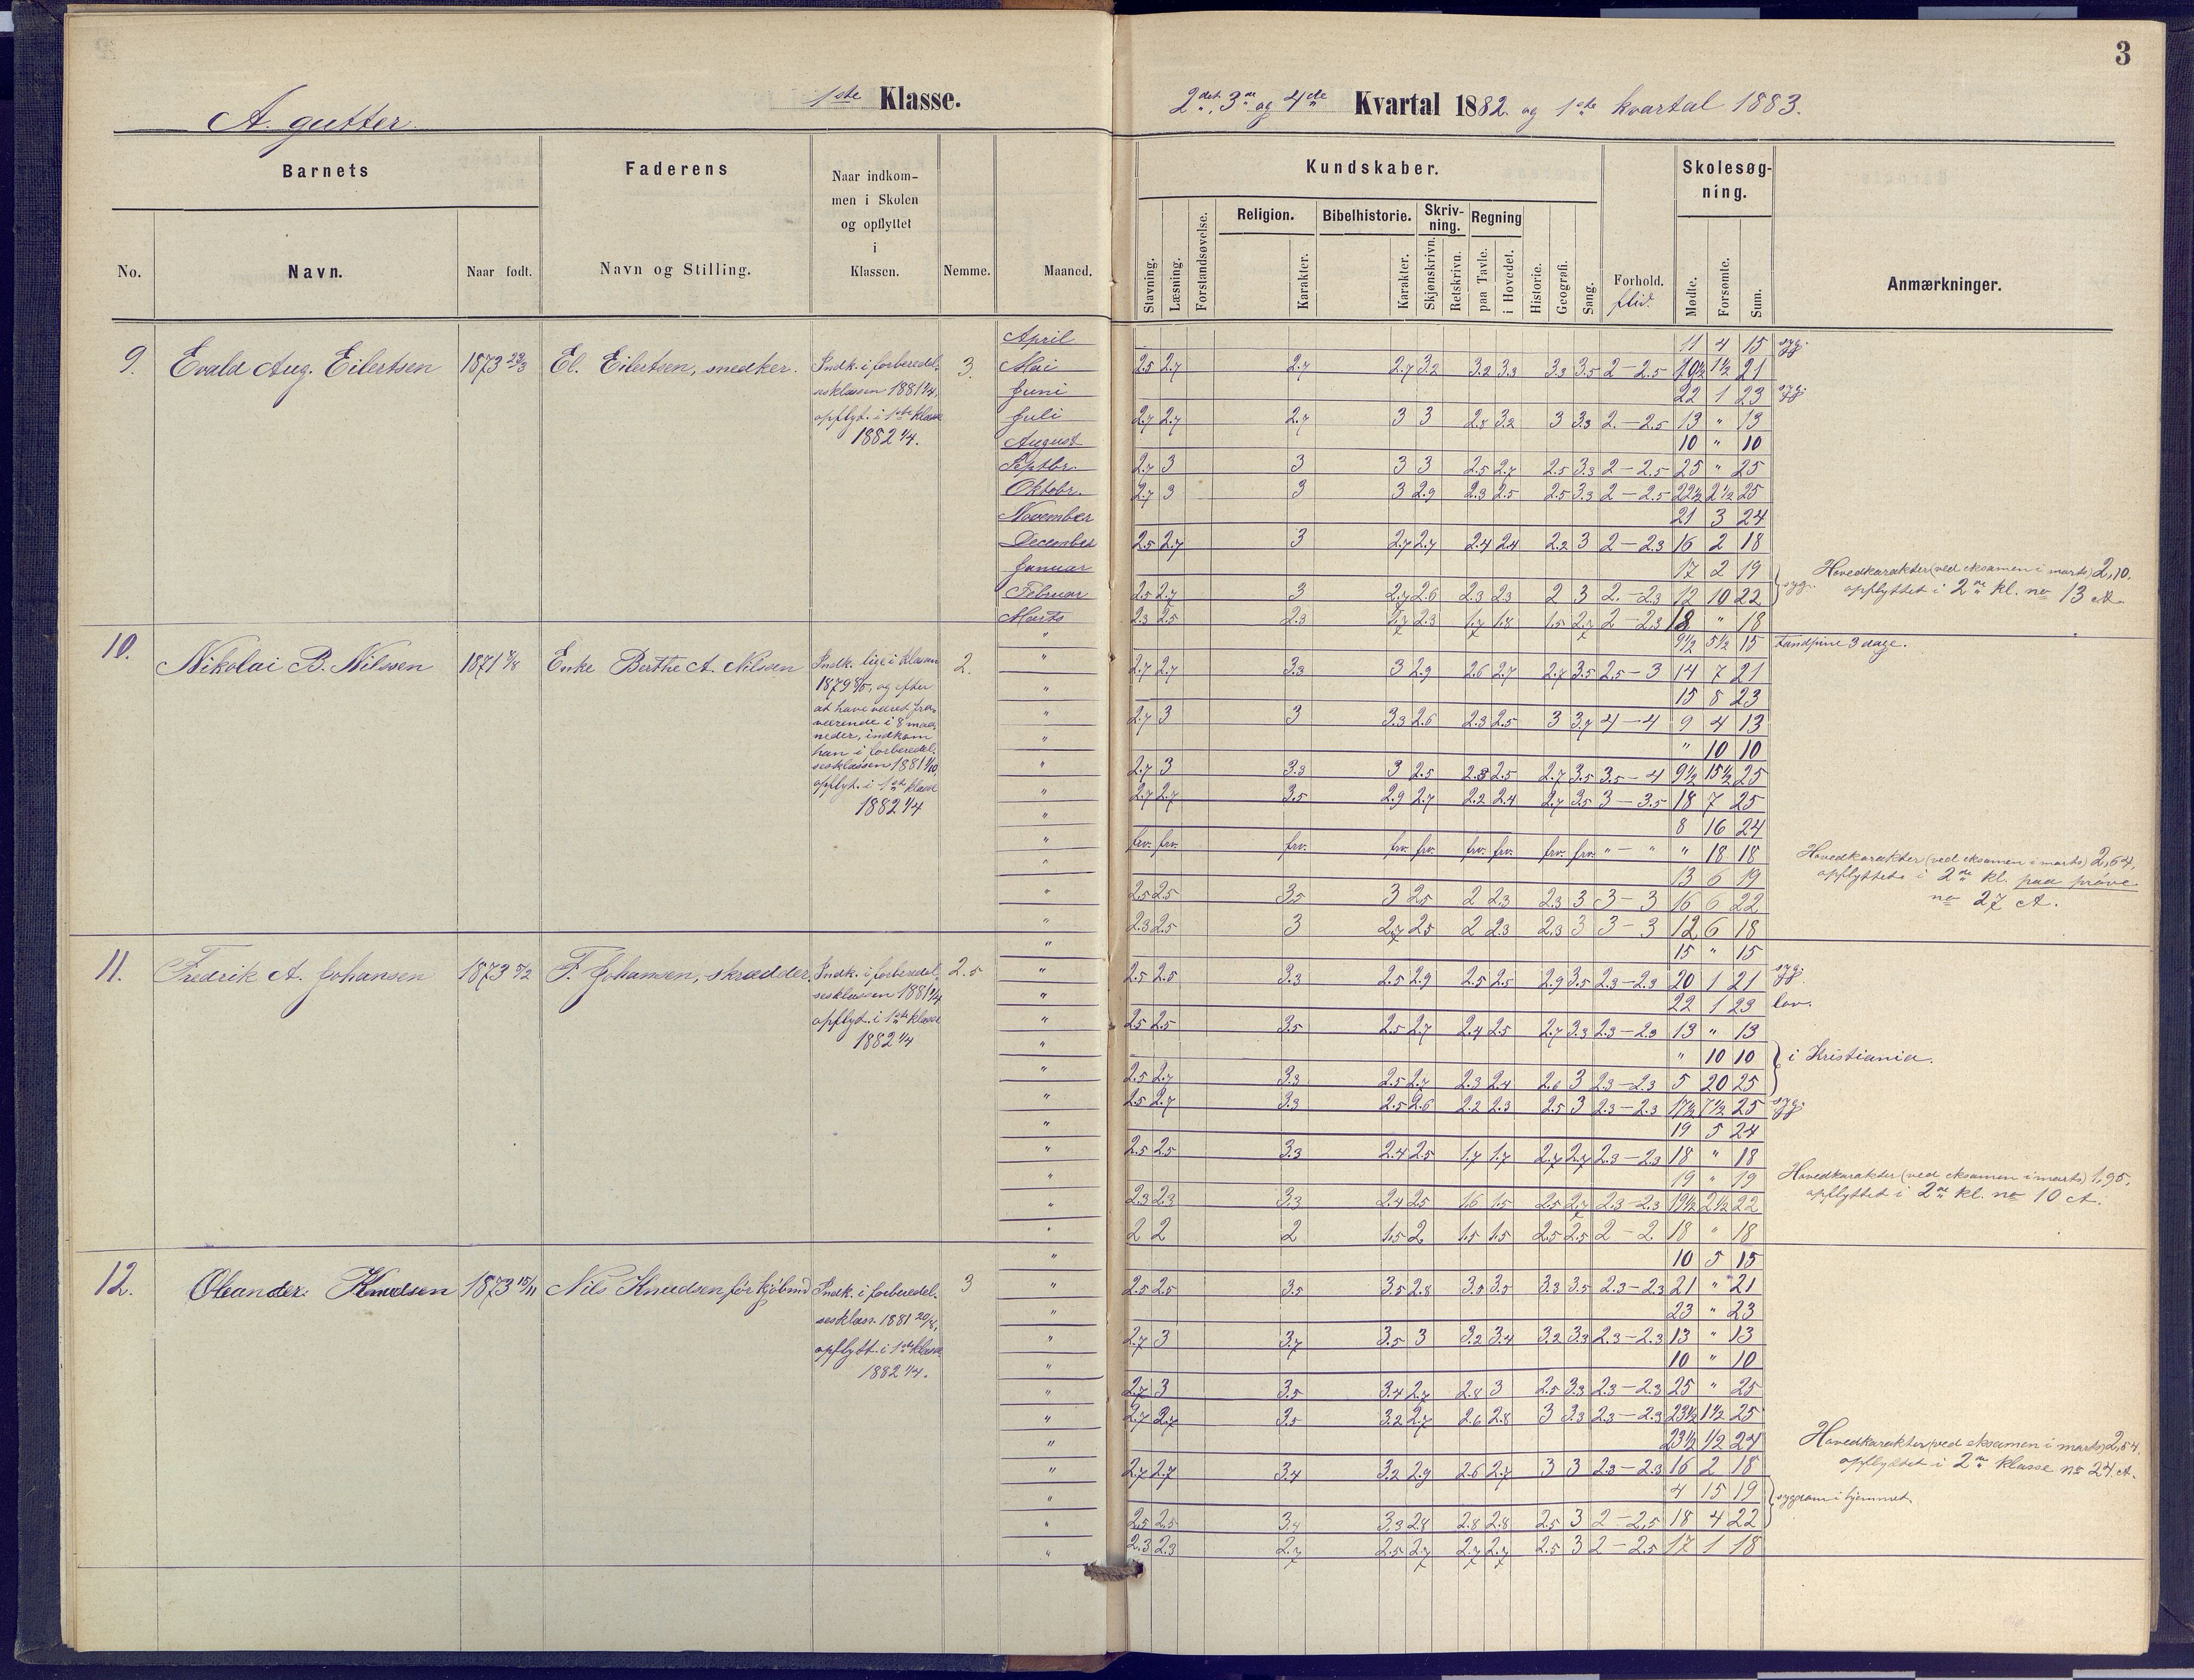 3
A. gutter.
1ste Klasse.
2det, 3de og 4de Kvartal 1882. og 1ste kvartal 1883.
Barnets
Faderens
Naar indkom-
men i Skolen
og opflyttet
i
Klassen.
Kundskaber.
Skolesøg-
ning.
No.
Navn.
Naar født.
Navn og Stilling.
Nemme.
Maaned.
Slavning.
Læsning.
Forstandsøvelse.
Religion.
Karakter.
Bibelhistorie.
Karakter.
Skriv-
ning.
Skjønskrivn.
Retskrivn.
Regning
paa Tavle.
i Hovedet.
Historie.
Geografi.
Sang.
Forhold.
flid.
Mødte.
Forsømte.
Sum.
Anmærkninger.
9. Evald Aug. Eilertsen 1873 El. Eilertsen, snedker. 3.
Indk. i forberedel-
sesklassen 1881 1/4,
opflyt. i 1ste klasse
1882 1/4.
April 11 4 15 syg.
Mai 2.5 2.7 2.7 2.7 3.2 3.2 3.3 3.3 3.5 2–2.5 19½ 1½ 21
Juni 22 1 23 syg.
Juli 2.7 2.7 2.7 3 3 2.8 3.2 3 3.3 2.–2.5 13 " 13
August 10 " 10
Septbr. 2.7 3 3 3 3 2.5 2.7 2.5 3.3 2–2.5 25 " 25
Oktobr. 2.7 3 3 3 2.9 2.3 2.5 2.5 3.3 2–2.5 22½ 2½ 25
November 21 3 24
December 2.5 2.7 3 2.7 2.7 2.4 2.4 2.2 3 2–2.3 16 2 18
Januar 17 2 19
Februar 2.5 2.7 3 2.7 2.6 2.3 2.3 2 3 2.–2.3 12 10 22 syg.
Marts 2.3 2.5 2.3 1.7 2.3 1.7 1.8 1.5 2.7 2–2.3 18 " 18
Hovedkarakter (ved eksamen i marts) 2,10,
opflyttet i 2de kl. no 13 A.
10. Nikolai B. Nilssen 1871 Enke Berthe A. Nilsen 2.
Indk. lige i klassen
1879, og efter
at have været fra-
værende i 8 maa-
neder, indkom
han i forberedel-
sesklassen 1881 1/10,
opflyt. i 1ste klasse
1882 1/4
" 9½ 5½ 15 tandpine 3 dage.
" 2.7 2.7 3.3 3 2.9 2.6 2.7 2.7 3.5 2.5–3 14 7 21
" 15 8 23
" 2.7 3 3 3.3 2.6 2.3 2.5 3 3.7 4–4 9 4 13
" " 10 10
" 2.7 3 3.3 3 2.5 2.3 2.5 2.7 3.5 3.5–4 9½ 15½ 25
" 2.7 2.7 3.5 2.9 2.7 2.2 2.4 2.7 3.5 3–3.5 18 7 25
" 8 16 24
" frv. frv. frv. frv. frv. frv. frv. frv. frv. "–" " 18 18
" 13 6 19
" 2.5 2.5 3.5 3 2.5 2 2.3 2.3 3 3–3 16 6 22
" 2.3 2.5 3 2.7 2.5 2 2.3 2.3 3 3–3 12 6 18
Hovedkarakter (ved eksamen i marts) 2,64,
opflyttet i 2de kl. paa prøve
no 27 A.
11. Fredrik A. Johansen 1873 5/2 F. Johansen, skrædder. 2.5
Indk. i forberedel-
sesklassen 1881 1/4,
opflyt. i 1ste klasse
1882 1/4
" 15 " 15
" 2.5 2.5 3.3 2.5 2.9 2.5 2.5 2.9 3.5 2.3–2.3 20 1 21 syg.
" 22 1 23 lov.
" 2.5 2.5 3.5 2.5 2.7 2.4 2.5 2.7 3.3 2.3–2.3 13 " 13
" " 10 10 i Kristiania.
" 2.5 2.7 3.3 2.5 2.7 2.3 2.4 2.6 3 2.3–2.3 5 20 25
" 2.5 2.7 3.3 2.5 2.6 2.2 2.3 2.5 3 2.3–2.3 17½ 7½ 25 syg.
" 19 5 24
" 2.5 2.5 3.3 2.4 2.5 1.7 1.7 2.7 2.7 2.3–2.3 18 " 18
" 19 " 19
" 2.3 2.3 3.3 2.4 2.5 1.6 1.5 2.5 2.7 2.3–2.3 19½ 2½ 22
" 2 2 2 1.5 2 1.5 1.5 2.5 2.5 2–2 18 " 18
Hovedkarakter (ved eksamen i marts) 1,95,
opflyttet i 2de kl. no 10 A.
12. Oleander Knudsen 1873 15/11 Nils Knudsen, før kjøbmd 3
Indk. i forberedel-
sesklass. 1881 20/8,
opflytt. i 1ste klasse
1882 1/4.
" 10 5 15
" 2.5 2.5 3.5 3.5 2.8 3.5 3.5 3.3 3.5 2.3–2.3 21 " 21
" 23 " 23
" 2.7 3 3.7 3.5 3 3.2 3.4 3.2 3.3 2.3–2.3 13 " 13
" 10 " 10
" 2.7 3 3.5 3.4 2.7 2.8 3 2.5 3.3 2.3–2.3 25 " 25
" 2.7 2.7 3.5 3.2 2.7 2.6 2.8 3 3.3 2.3–2.3 23½ 1½ 25
" 23½ 1/2 24
" 2.7 2.7 3.4 3.2 2.9 2.6 2.7 3 3 2.3–2.3 16 2 18
" 4 15 19 sygdom i hjemmet.
" 2.5 2.5 3.4 3.3 2.8 2.8 2.8 2.5 3 2–2.5 18 4 22
" 2.3 2.3 2.7 2.5 2.7 2.7 2.7 2.5 3 2–2.5 17 1 18
Hovedkarakter (ved eksamen i marts) 2,54,
opflyttet i 2de klasse no 24 A.